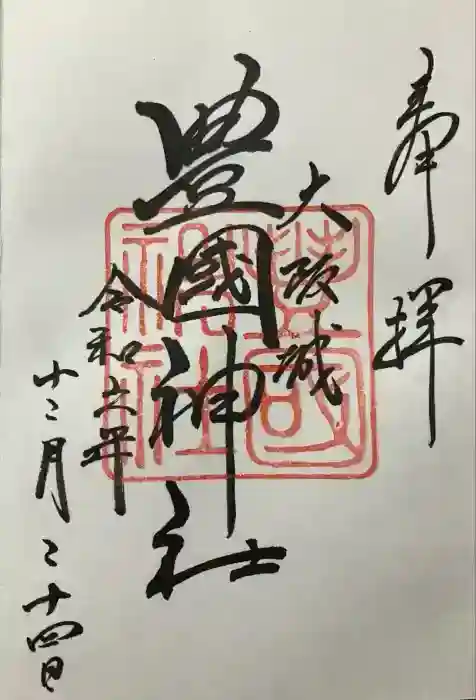 奉拝
大阪城
豊國神社
令和六年
十二月二十四日
豊國神社